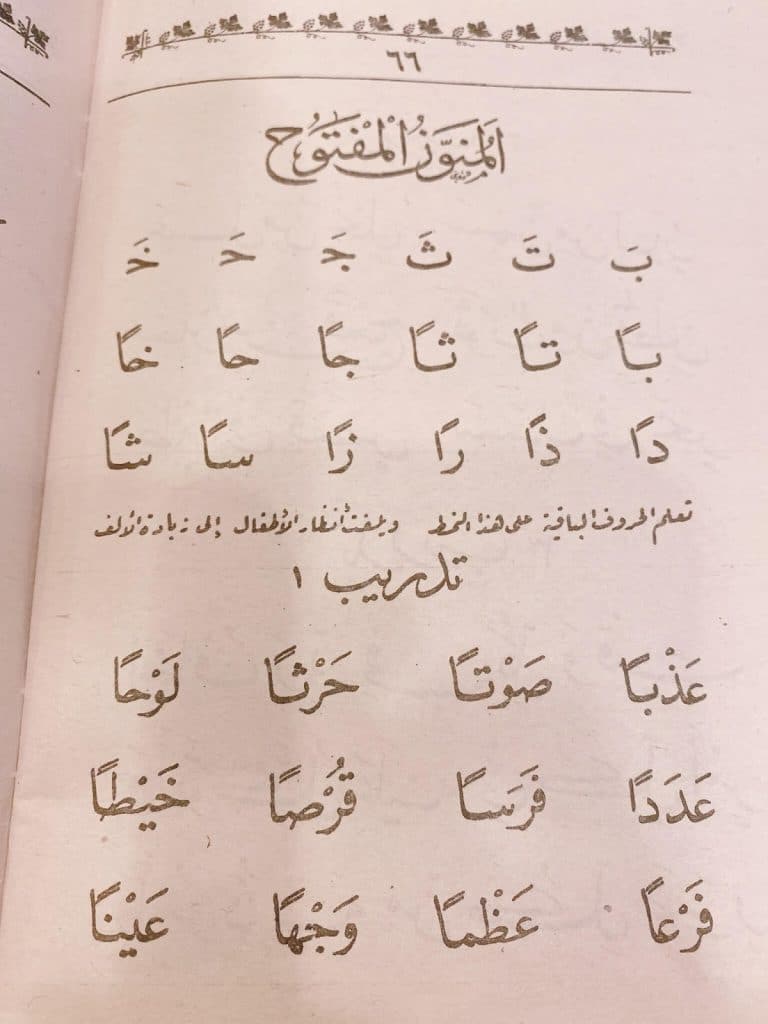 ٦٦
اَلْمُنَوَّنُ الْمَفْتَوُح
بَ تَ ثَ جَ حَ خَ
بًا تًا ثًا جًا حًا خًا
دًا ذًا رًا زًا سًا شًا
تعلم الحروف الباقية على هذا النمط ويلفت أنظار الأطفال إلى زيادة الألف
تدريب ١
عَذْبًا صَوْتًا حَرْثًا لَوْحًا
عَدَدًا فَرَسًا قُرْصًا خَيْطًا
فَرْعًا عَظْمًا وَجْهًا عَيْنًا